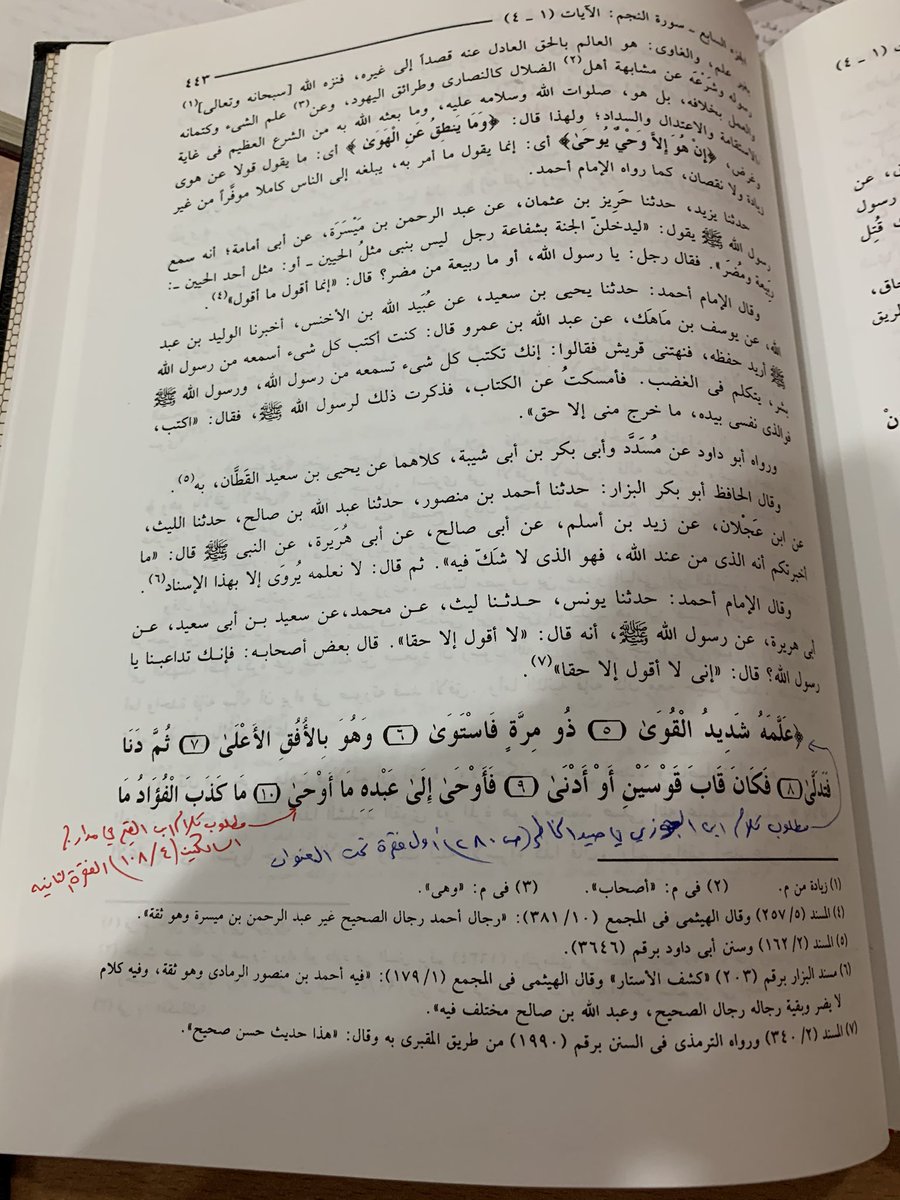 الجزء السابع ـ سورة النجم: الآيات (١ ـ ٤)
٤٤٣
بغير علم، والغاوى: هو العالم بالحق العادل عنه قصداً إلى غيره، فنزه الله [سبحانه وتعالى](١)
رسوله وشَرْعَه عن مشابهة أهل(٢) الضلال كالنصارى وطرائق اليهود، وعن(٣) علم الشىء وكتمانه
والعمل بخلافه، بل هو، صلوات الله وسلامه عليه، وما بعثه الله به من الشرع العظيم فى غاية
الاستقامة والاعتدال والسداد؛ ولهذا قال: ﴿وَمَا يَنطِقُ عَنِ الْهَوَىٰ﴾ أى: ما يقول قولا عن هوى
وغرض، ﴿إِنْ هُوَ إِلاَّ وَحْيٌ يُوحَىٰ﴾ أى: إنما يقول ما أمر به، يبلغه إلى الناس كاملا موفَّراً من غير
زيادة ولا نقصان، كما رواه الإمام أحمد.
حدثنا يزيد، حدثنا حَرِيز بن عثمان، عن عبد الرحمن بن مَيْسَرَة، عن أبى أمامة؛ أنه سمع
رسول الله ﷺ يقول: «ليدخلنّ الجنة بشفاعة رجل ليس بنبى مثلُ الحيين ـ أو: مثل أحد الحيين ـ:
ربَيعة ومُضَر». فقال رجل: يا رسول الله، أو ما ربيعة من مضر؟ قال: «إنما أقول ما أقول»(٤).
وقال الإمام أحمد: حدثنا يحيى بن سعيد، عن عُبَيد الله بن الأخنس، أخبرنا الوليد بن عبد
الله، عن يوسف بن مَاهَك، عن عبد الله بن عمرو قال: كنت أكتب كل شىء أسمعه من رسول الله
ﷺ أريد حفظه، فنهتنى قريش فقالوا: إنك تكتب كل شىء تسمعه من رسول الله، ورسول الله ﷺ
بشر، يتكلم فى الغضب. فأمسكتُ عن الكتاب، فذكرت ذلك لرسول الله ﷺ، فقال: «اكتب،
فوالذى نفسى بيده، ما خرج منى إلا حق».
ورواه أبو داود عن مُسَدَّد وأبى بكر بن أبى شيبة، كلاهما عن يحيى بن سعيد القَطَّان، به(٥).
وقال الحافظ أبو بكر البزار: حدثنا أحمد بن منصور، حدثنا عبد الله بن صالح، حدثنا الليث،
عن ابن عَجْلان، عن زيد بن أسلم، عن أبى صالح، عن أبى هُرَيرة، عن النبى ﷺ قال: «ما
أخبرتكم أنه الذى من عند الله، فهو الذى لا شكَ فيه». ثم قال: لا نعلمه يُروَى إلا بهذا الإسناد(٦).
وقال الإمام أحمد: حدثنا يونس، حدثنا ليث، عن محمد، عن سعيد بن أبى سعيد، عن
أبى هريرة، عن رسول الله ﷺ، أنه قال: «لا أقول إلا حقا». قال بعض أصحابه: فإنك تداعبنا يا
رسول الله؟ قال: «إنى لا أقول إلا حقا»(٧).
﴿عَلَّمَهُ شَدِيدُ الْقُوَىٰ (٥) ذُو مِرَّةٍ فَاسْتَوَىٰ (٦) وَهُوَ بِالأُفُقِ الأَعْلَىٰ (٧) ثُمَّ دَنَا
فَتَدَلَّىٰ (٨) فَكَانَ قَابَ قَوْسَيْنِ أَوْ أَدْنَىٰ (٩) فَأَوْحَىٰ إِلَىٰ عَبْدِهِ مَا أَوْحَىٰ (١٠) مَا كَذَبَ الْفُؤَادُ مَا
مطلوب كلام ابن الجوزي في صيد الخاطر (ص ٢٨٠) أول فقرة تحت العنوان
مطلوب كلام ابن القيم في مدارج
السالكين (٤/ ١٠٨) الفقرة الثانية
(١) زيادة من م. (٢) فى م: «أصحاب». (٣) فى م: «وهى».
(٤) المسند (٥/ ٢٥٧) وقال الهيثمى فى المجمع (١٠/ ٣٨١): «رجال أحمد رجال الصحيح غير عبد الرحمن بن ميسرة وهو ثقة».
(٥) المسند (٢/ ١٦٢) وسنن أبى داود برقم (٣٦٤٦).
(٦) مسند البزار برقم (٢٠٣) «كشف الأستار» وقال الهيثمى فى المجمع (١/ ١٧٩): «فيه أحمد بن منصور الرمادى وهو ثقة، وفيه كلام
لا يضر وبقية رجاله رجال الصحيح، وعبد الله بن صالح مختلف فيه».
(٧) المسند (٢/ ٣٤٠) ورواه الترمذى فى السنن برقم (١٩٩٠) من طريق المقبرى به وقال: «هذا حديث حسن صحيح».